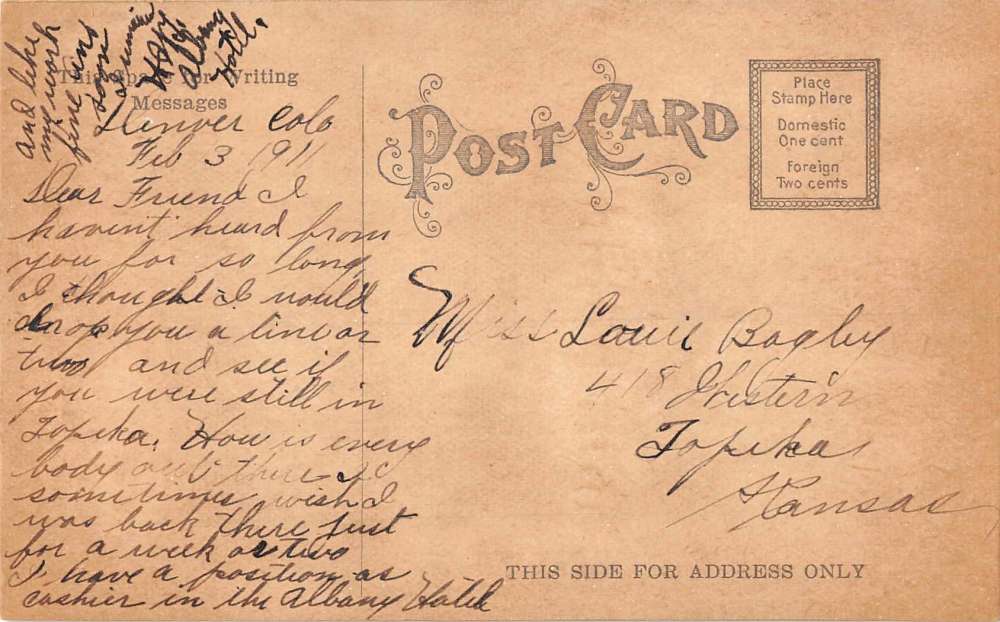 This Space for Writing
Messages
Denver Colo
Feb 3 1911
Dear Friend I
havent heard from
you for so long
I thought I would
drop you a line or
two and see if
you were still in
Topeka. How is every
body out there I
sometimes wish I
was back there just
for a week or two
I have a position as
cashier in the Albany Hotel
and like
my work
fine
soon
Albany
Hotel.
POST CARD
Place
Stamp Here
Domestic
One cent
Foreign
Two cents
Miss Louie Bagby
418 Western
Topeka
Kansas
THIS SIDE FOR ADDRESS ONLY